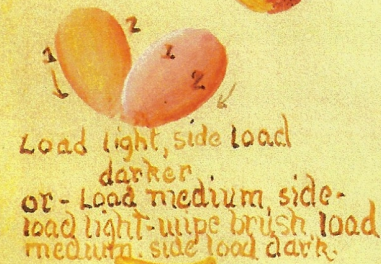 1 2 1 2
Load light, side load
darker
or - Load medium, side-
load light - wipe brush, load
medium. side load dark.